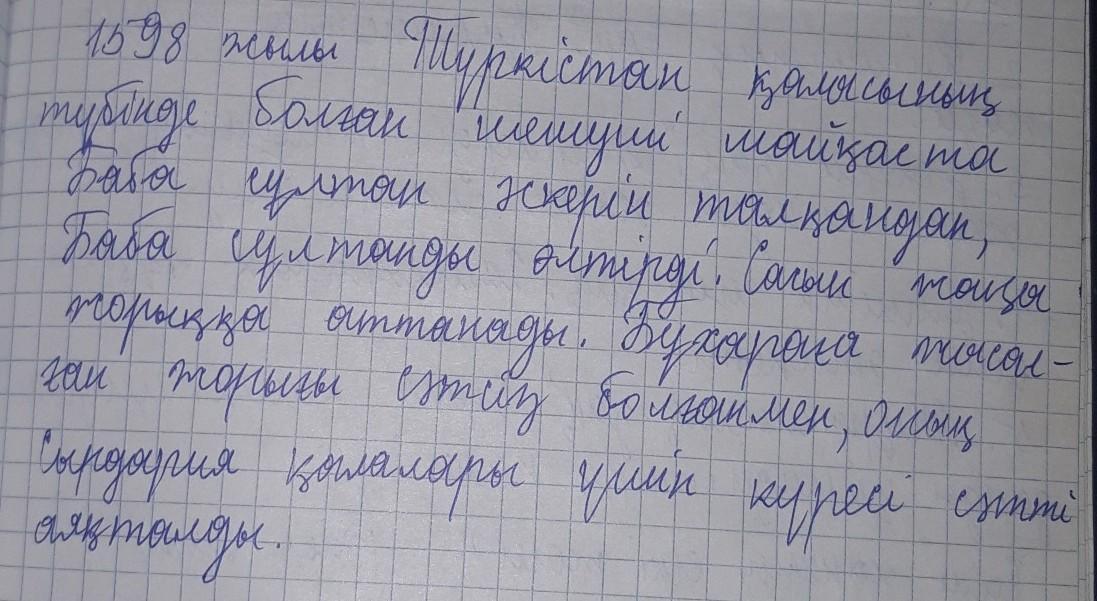 1598 жылы Түркістан қаласының
түбінде болған шешуші шайқаста
Баба сұлтан әскерін талқандап,
Баба сұлтанды өлтірді. Сосын жаңа
жорыққа аттанады. Бұхараға жасал-
ған жорығы сәтсіз болғанмен, оның
Сырдария қалалары үшін күресі сәтті
аяқталды.